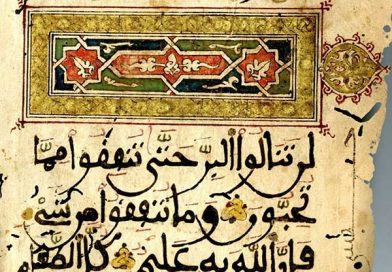 لن تنالوا البرَّ حتَّى تنفقوا ممَّا
تحبُّون وما تنفقوا من شيْءٍ
فإنَّ اللَّه به عليمٌ كلُّ الطَّعام